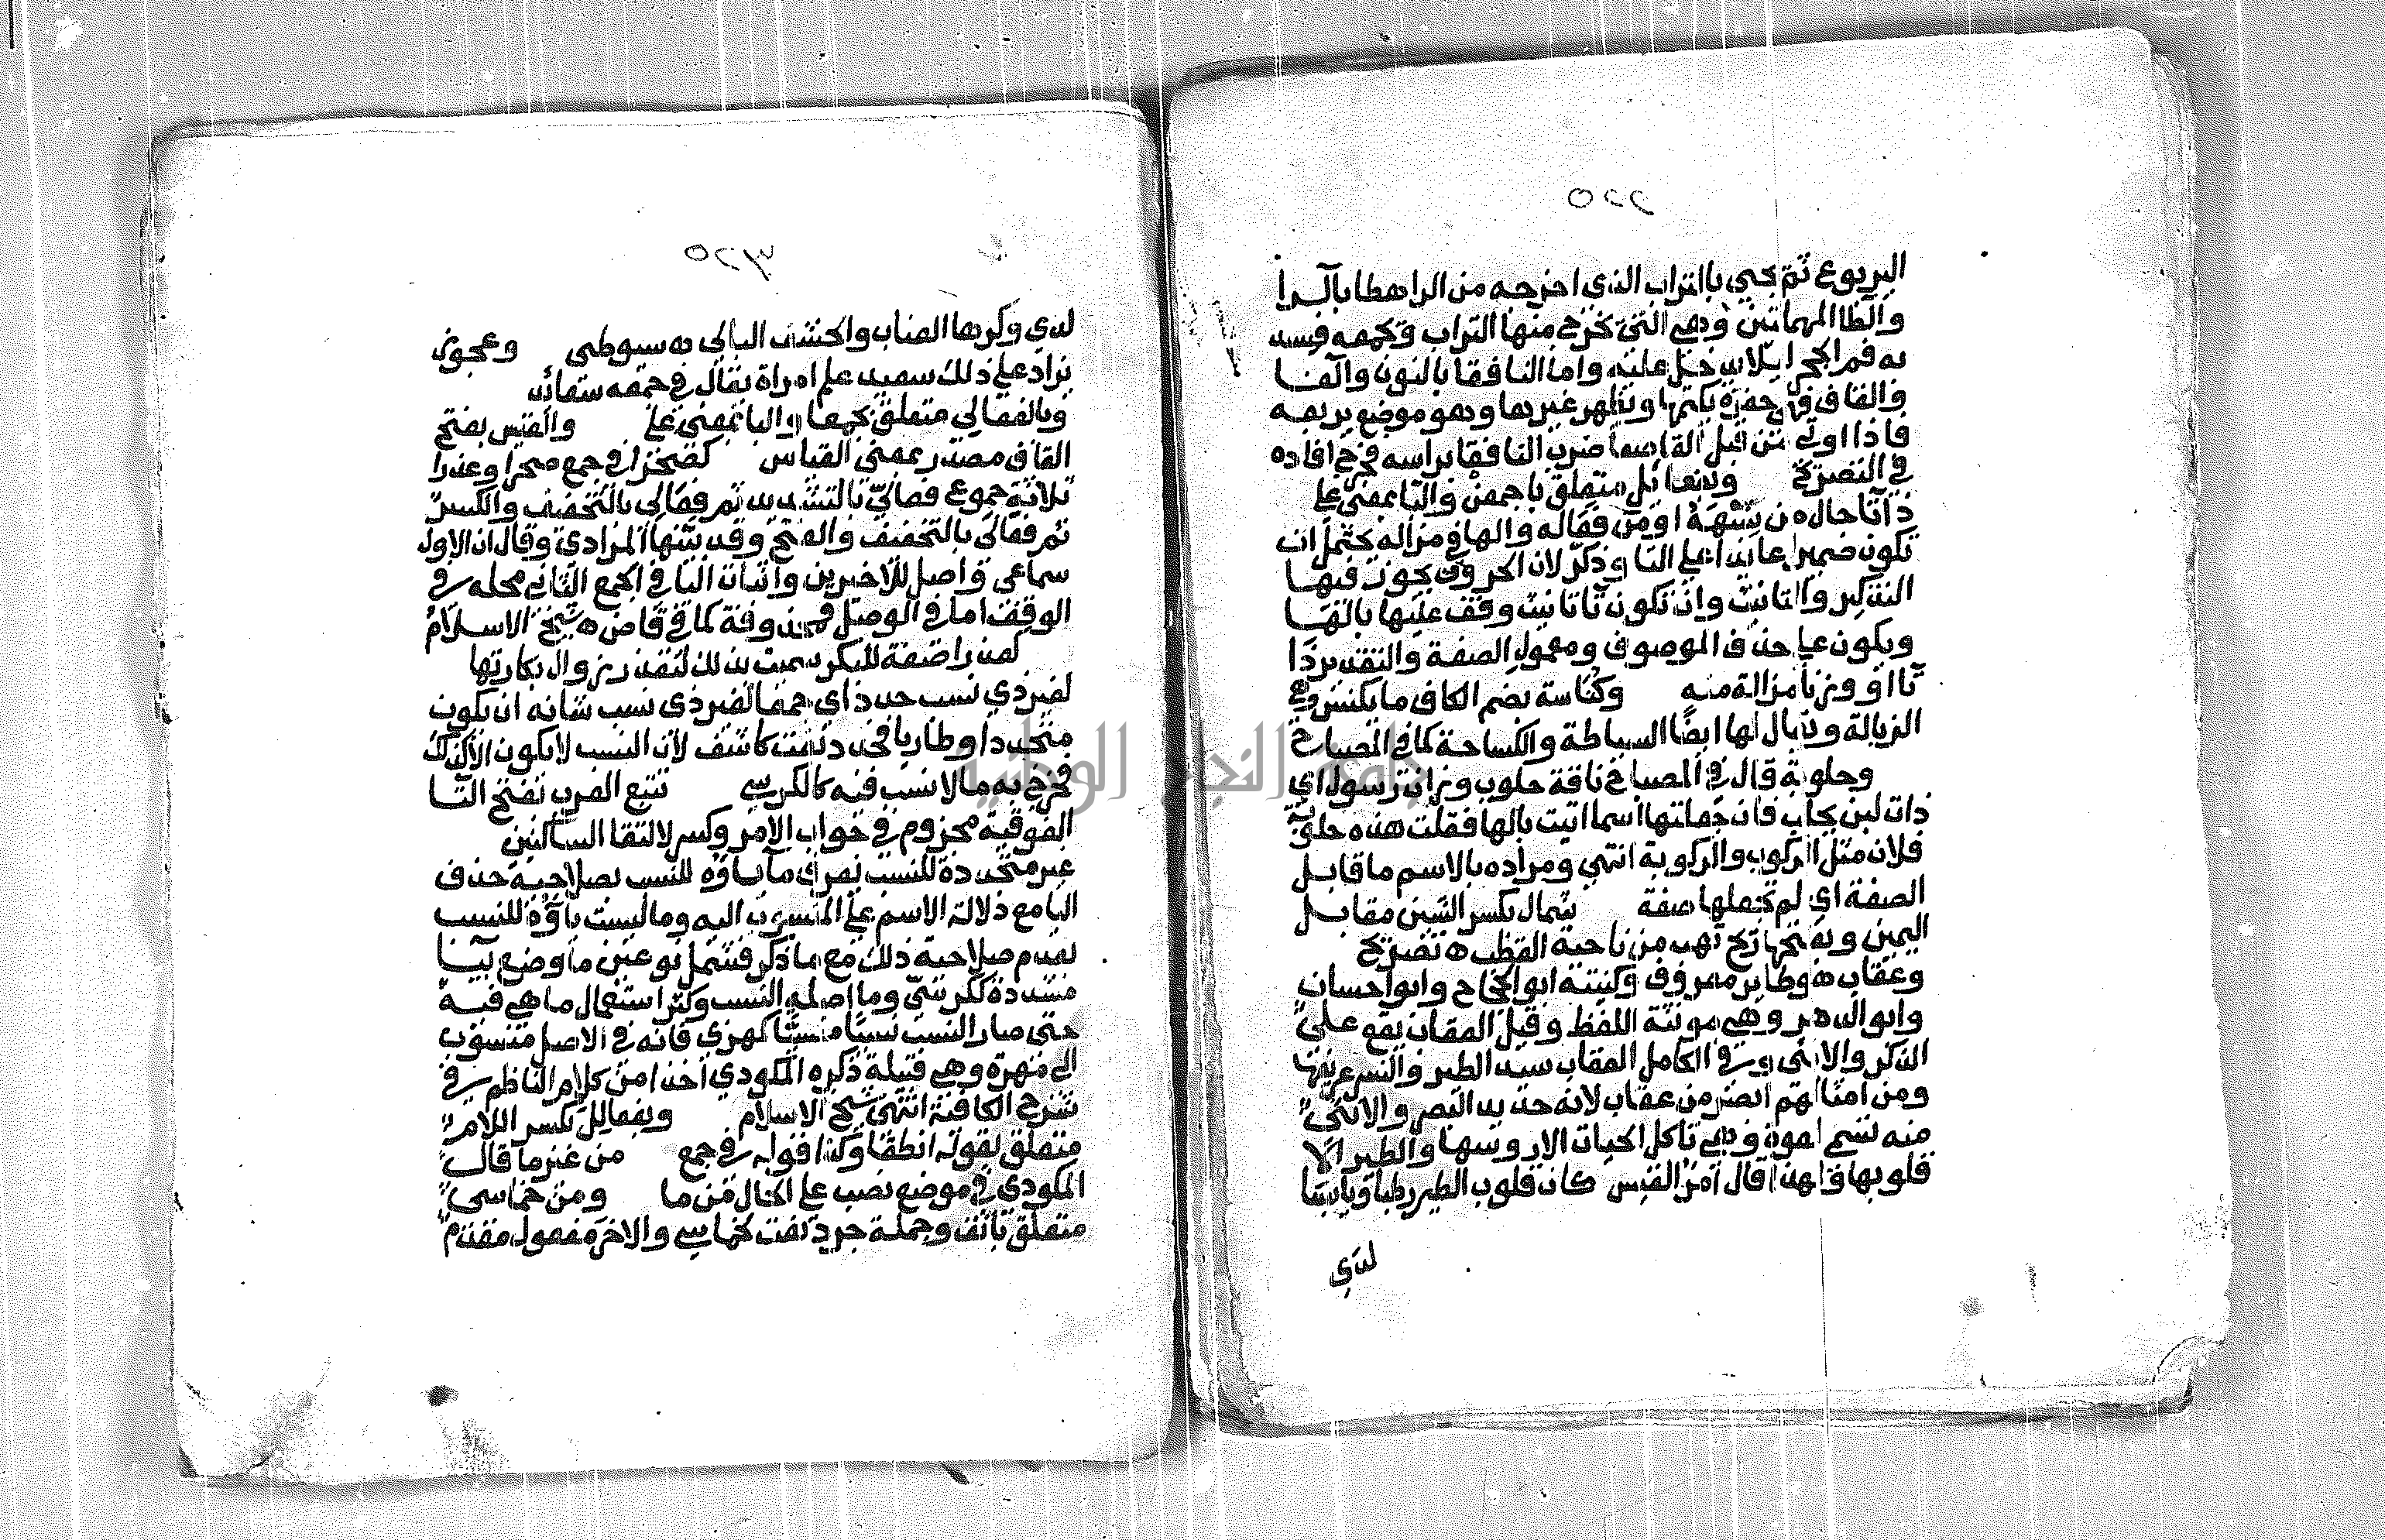 ٢٢٥
اليربوع ثم يجيي بالتراب الذي اخرجه من الراهطا بالرا
والطا المهملتين وهي التي يخرج منها التراب ويجمعه فيسد
به فم الجحر ليلا يدخل عليه واما النافقا بالنون والفا
والقاف فهي حفرة يكتمها ويظهر غيرها وهو موضع يرققه
فاذا اوتي من قبل القاصعا ضرب النافقا براسه فخرج افاده
في التصريح وبفعائل متعلق باجمعن والبا بمعنى على
ذا تا حال من شبهه او من فعاله والها في مزاله يحتمل ان
يكون ضميرا عائدا على التا وذكر لان الحروف يجوز فيها
التذكير والتانيث وان تكون تا تانيث وقف عليها بالها
ويكون على حذف الموصوف ومعمول الصفة والتقدير ذا
تا او وزنا مزالة منه وكناسة بضم الكاف ما يكنس وهي
الزبالة ويقال لها ايضا السباطة والكساحة كما في المصباح
وحلوبة قال في المصباح ناقة حلوب وزان رسول اي
ذات لبن يحلب فان جعلتها اسما اتيت بالها فقلت هذه حلوبة
فلان مثل الركوب والركوبة انتهي ومراده بالاسم ما قابل
الصفة اي لم تجعلها صفة شمال بكسر الشين مقابل
اليمين وبفتحها ريح تهب من ناحية القطب ه تصريح
وعقاب هو طاير معروف وكنيته ابو الحجاج وابو احسان
وابو الدهر وهي مونثة اللفظ وقيل العقاب يقع على
الذكر والانثى وفي الكامل العقاب سيد الطير والنسر عريفها
ومن امثالهم ابصر من عقاب لانه حديد البصر والانثى
منه تسمى لقوة وهي تاكل الحيات الا روسها والطير الا
قلوبها ولهذا قال امرؤ القيس كان قلوب الطير رطبا ويابسا
لدي
٣٢٥
لدي وكرها العناب والحشف البالي ه سيوطى وعجوز
يزاد على ذلك سعيد علم امراة يقال في جمعه سعائد
وبالفعالي متعلق بجمعا والبا بمعنى على والقيس بفتح
القاف مصدر بمعنى القياس كصحرا في جمع صحرا وعذرا
ثلاثة جموع فعاليّ بالتشديد ثم فعالي بالتخفيف والكسر
ثم فعالى بالتخفيف والفتح وقد بينها المرادي وقال ان الاول
سماعي واصل للاخيرين واثبات اليا في الجمع الثاني محله في
الوقف اما في الوصل فمحذوفة كما في قاض ه شيخ الاسلام
لعذرا صفة للبكر سميت بذلك لتعذر زوال بكارتها
لغير ذي نسب جدد اي جمعا لغير ذي نسب شانه ان يكون
متجددا وطاريا فجدد نعت كاشف لان النسب لا يكون الا كذلك
فخرج به ما لا نسب فيه كالكرسي تتبع العرب بفتح التا
الفوقية مجزوم في جواب الامر وكسر لالتقا الساكنين
غير متجددة للنسب يعرف ما ياؤه للنسب بصلاحية حذف
اليا مع دلالة الاسم على المنسوب اليه وما ليست ياؤه للنسب
بعدم صلاحية ذلك مع ما ذكر فشمل نوعين ما وضع بيا
مشددة ككرسي وما اصله النسب وكثر استعمال ما هي فيه
حتى صار النسب نسيا منسيا كمهري فانه في الاصل منسوب
الى مهرة وهي قبيلة ذكره المكودي اخذا من كلام الناظم في
شرح الكافية انتهى شيخ الاسلام وبفعالل بكسر اللام
متعلق بقوله انطقا وكذا قوله في جمع من غير ما قال
المكودي في موضع نصب على الحال من ما ومن خماسي
متعلق بانف وجملة جرد نعت لخماسي والاخر مفعول مقدم